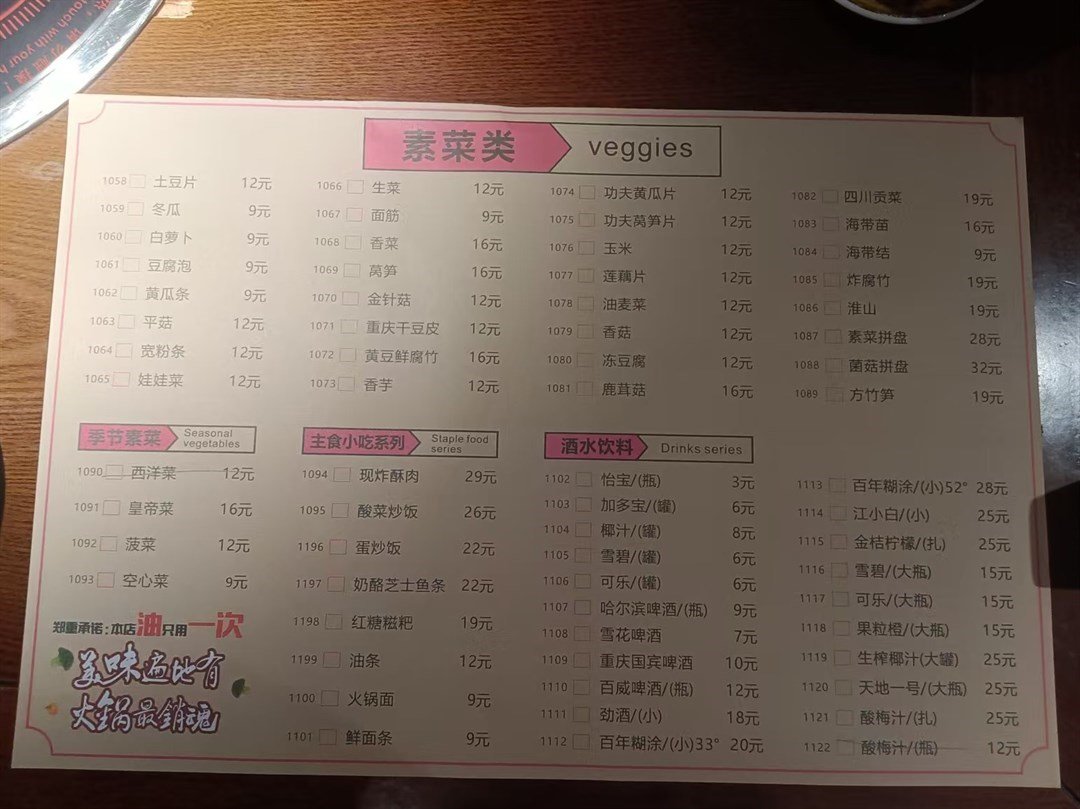 素菜类 veggies
1058 土豆片 12元
1059 冬瓜 9元
1060 白萝卜 9元
1061 豆腐泡 9元
1062 黄瓜条 9元
1063 平菇 12元
1064 宽粉条 12元
1065 娃娃菜 12元
1066 生菜 12元
1067 面筋 9元
1068 香菜 16元
1069 莴笋 16元
1070 金针菇 12元
1071 重庆干豆皮 12元
1072 黄豆鲜腐竹 16元
1073 香芋 12元
1074 功夫黄瓜片 12元
1075 功夫莴笋片 12元
1076 玉米 12元
1077 莲藕片 12元
1078 油麦菜 12元
1079 香菇 12元
1080 冻豆腐 12元
1081 鹿茸菇 16元
1082 四川贡菜 19元
1083 海带苗 16元
1084 海带结 9元
1085 炸腐竹 19元
1086 淮山 19元
1087 素菜拼盘 28元
1088 菌菇拼盘 32元
1089 方竹笋 19元
季节素菜 Seasonal vegetables
1090 西洋菜 12元
1091 皇帝菜 16元
1092 菠菜 12元
1093 空心菜 9元
郑重承诺:本店油只用一次
美味遍地有
火锅最销魂
主食小吃系列 Staple food series
1094 现炸酥肉 29元
1095 酸菜炒饭 26元
1196 蛋炒饭 22元
1197 奶酪芝士鱼条 22元
1198 红糖糍粑 19元
1199 油条 12元
1100 火锅面 9元
1101 鲜面条 9元
酒水饮料 Drinks series
1102 怡宝/(瓶) 3元
1103 加多宝/(罐) 6元
1104 椰汁/(罐) 8元
1105 雪碧/(罐) 6元
1106 可乐/(罐) 6元
1107 哈尔滨啤酒/(瓶) 9元
1108 雪花啤酒 7元
1109 重庆国宾啤酒 10元
1110 百威啤酒/(瓶) 12元
1111 劲酒/(小) 18元
1112 百年糊涂/(小)33° 20元
1113 百年糊涂/(小)52° 28元
1114 江小白/(小) 25元
1115 金桔柠檬/(扎) 25元
1116 雪碧/(大瓶) 15元
1117 可乐/(大瓶) 15元
1118 果粒橙/(大瓶) 15元
1119 生榨椰汁(大罐) 25元
1120 天地一号/(大瓶) 25元
1121 酸梅汁/(扎) 25元
1122 酸梅汁/(瓶) 12元